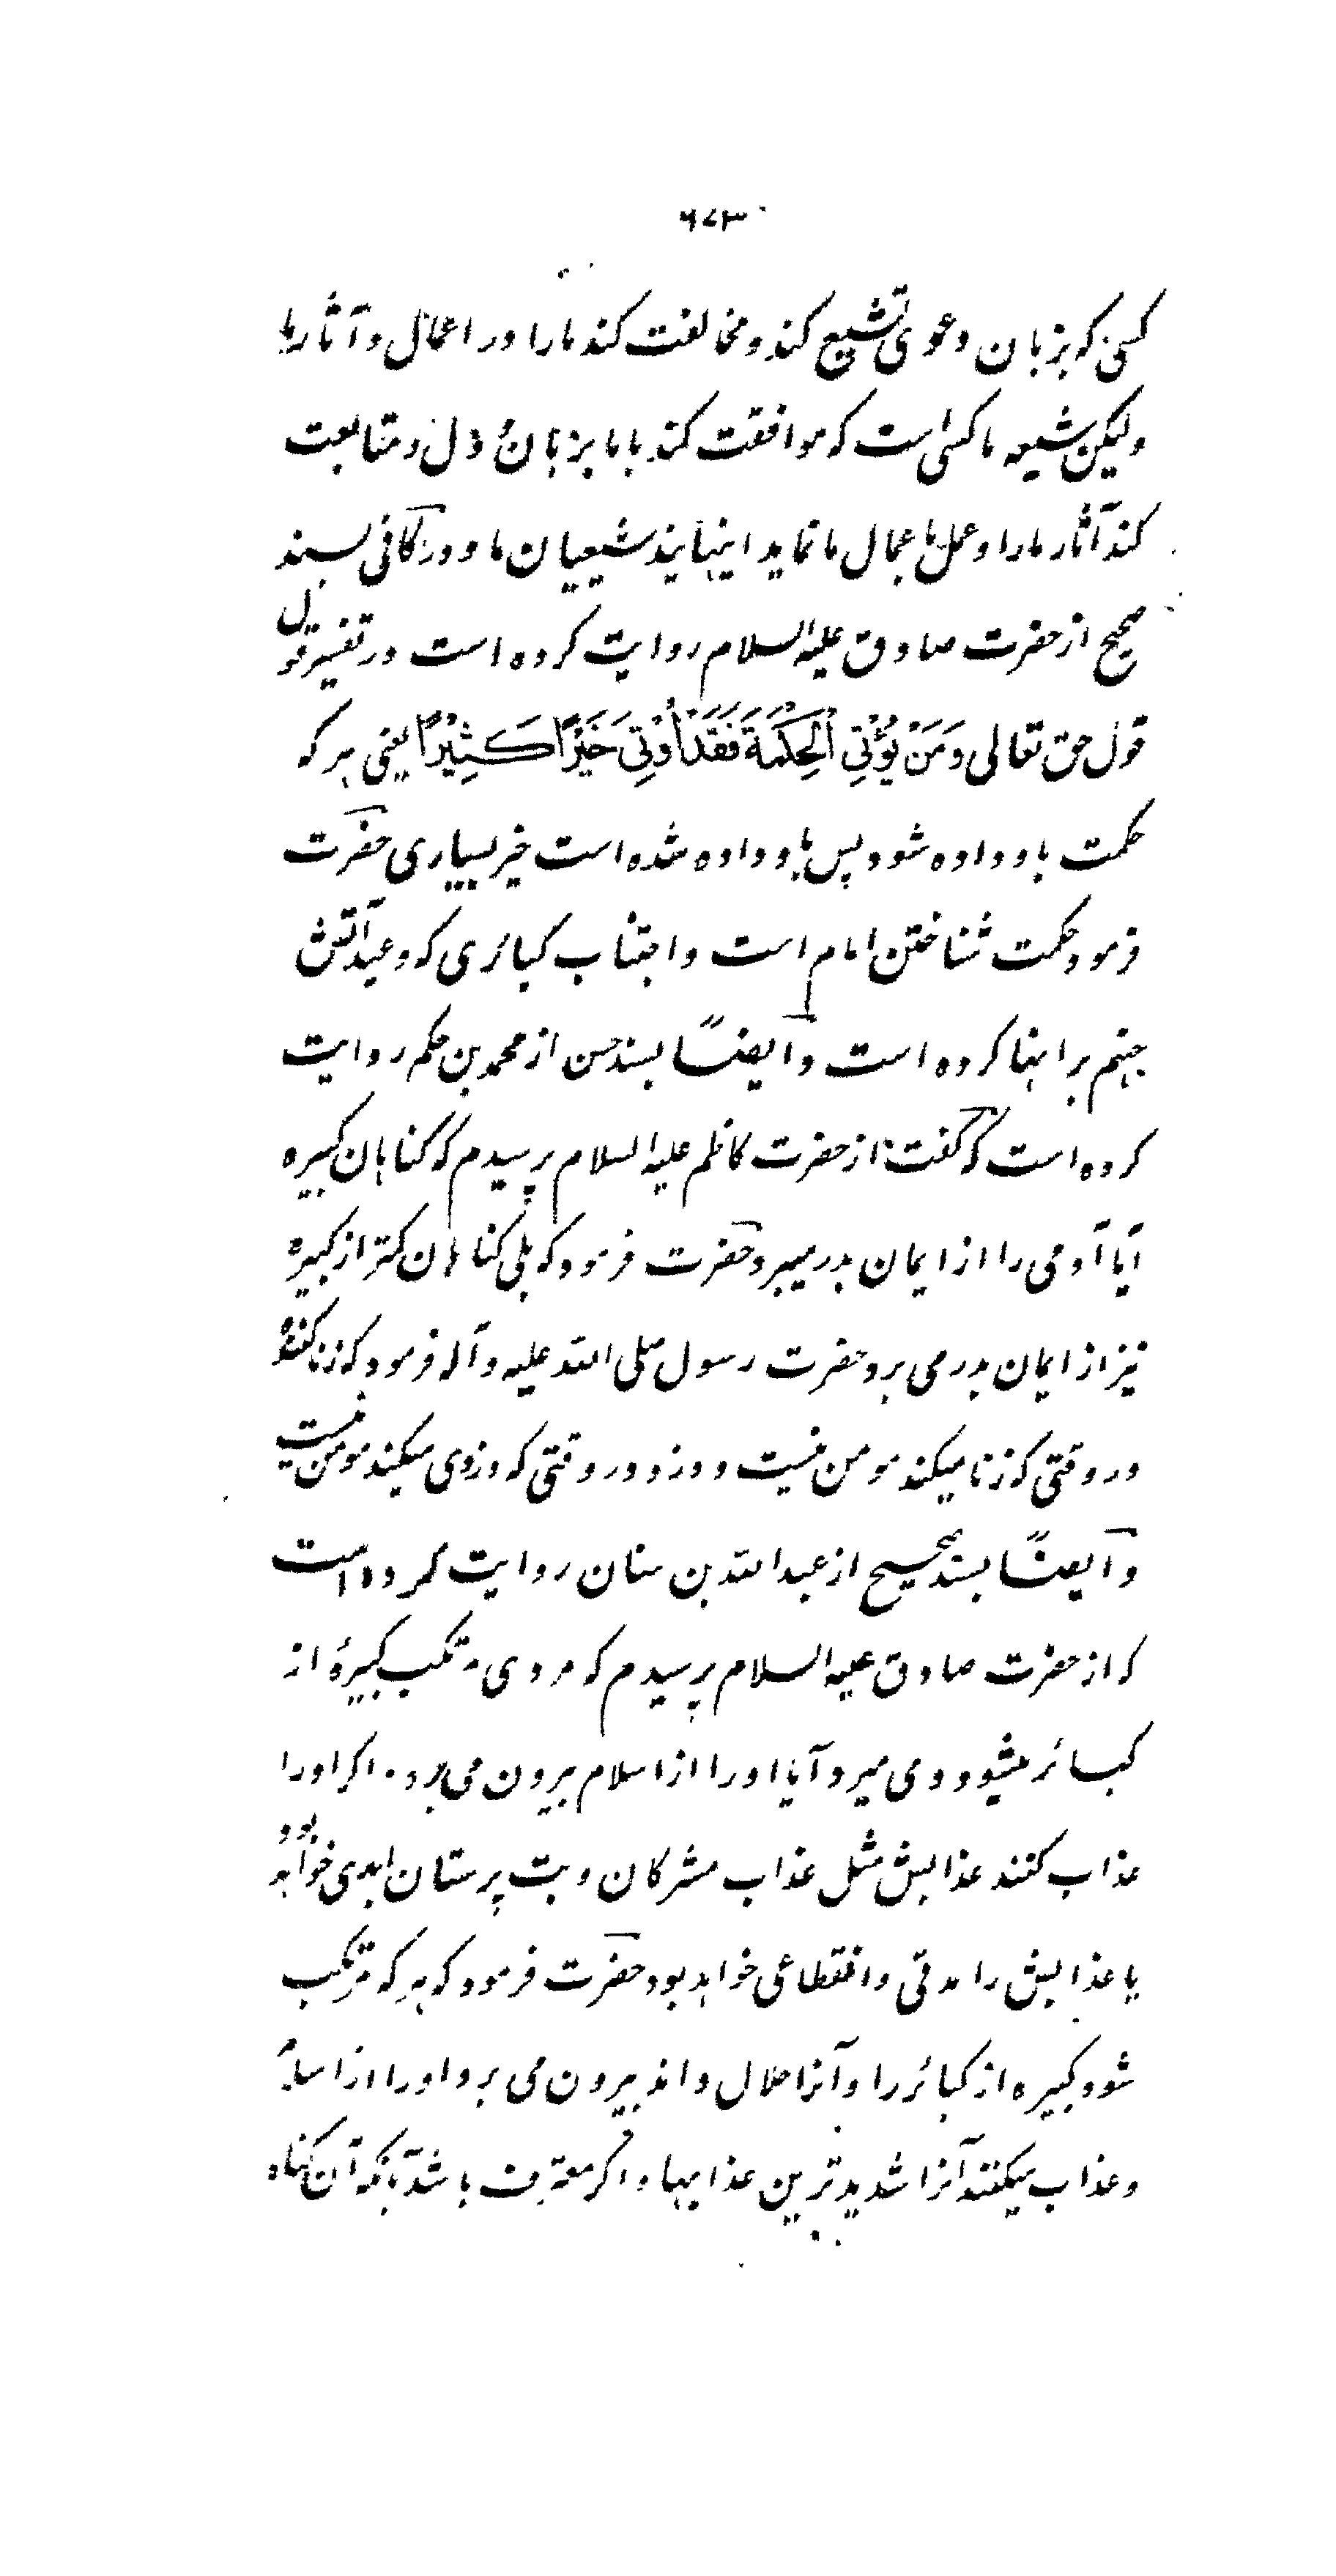 ۶۷۳
کسی که بزبان دعوی تشیع کند و مخالفت کند ما را در اعمال و آثار ما
ولیکن شیعه ما کسی است که موافقت کند با ما بزبان و دل و متابعت
کند آثار ما را و عمل باعمال ما نماید اینها یند شیعیان ما و در کافی بسند
صحیح از حضرت صادق علیه السلام روایت کرده است در تفسیر قول
قول حق تعالی وَمَنْ يُؤْتِي الْحِكْمَةَ فَقَدْ أُوتِيَ خَيْرًا كَثِيْرًا یعنی هر که
حکمت باو داده شود پس باو داده شده است خیر بسیاری حضرت
فرمود حکمت شناختن امام است و اجتناب کبائری که وعید آتش
جهنم بر اینها کرده است و ایضًا بسند حسن از محمد بن حکم روایت
کرده است که گفت از حضرت کاظم علیه السلام پرسیدم که گناهان کبیره
آیا آدمی را از ایمان بدر میبرد حضرت فرمود که بلی گناهان کمتر از کبیره
نیز از ایمان بدر می برد حضرت رسول صلی الله علیه و آله فرمود که زنا کننده
در وقتی که زنا میکند مومن نیست و دزد در وقتی که دزدی میکند مومن نیست
و ایضًا بسند صحیح از عبد الله بن سنان روایت کرده است
که از حضرت صادق علیه السلام پرسیدم که مردی مرتکب کبیرهٔ از
کبائر میشود و می میرد آیا او را از اسلام بیرون می برد. اگر او را
عذاب کنند عذابش مثل عذاب مشرکان و بت پرستان ابدی خواهد بود
یا عذابش را مدتی و انقطاعی خواهد بود حضرت فرمود که هر که مرتکب
شود کبیره از کبائر را و آنرا حلال داند بیرون می برد او را از اسلام
و عذاب میکنند آنرا شدیدترین عذابها و اگر معترف باشد بآنکه آن گناه